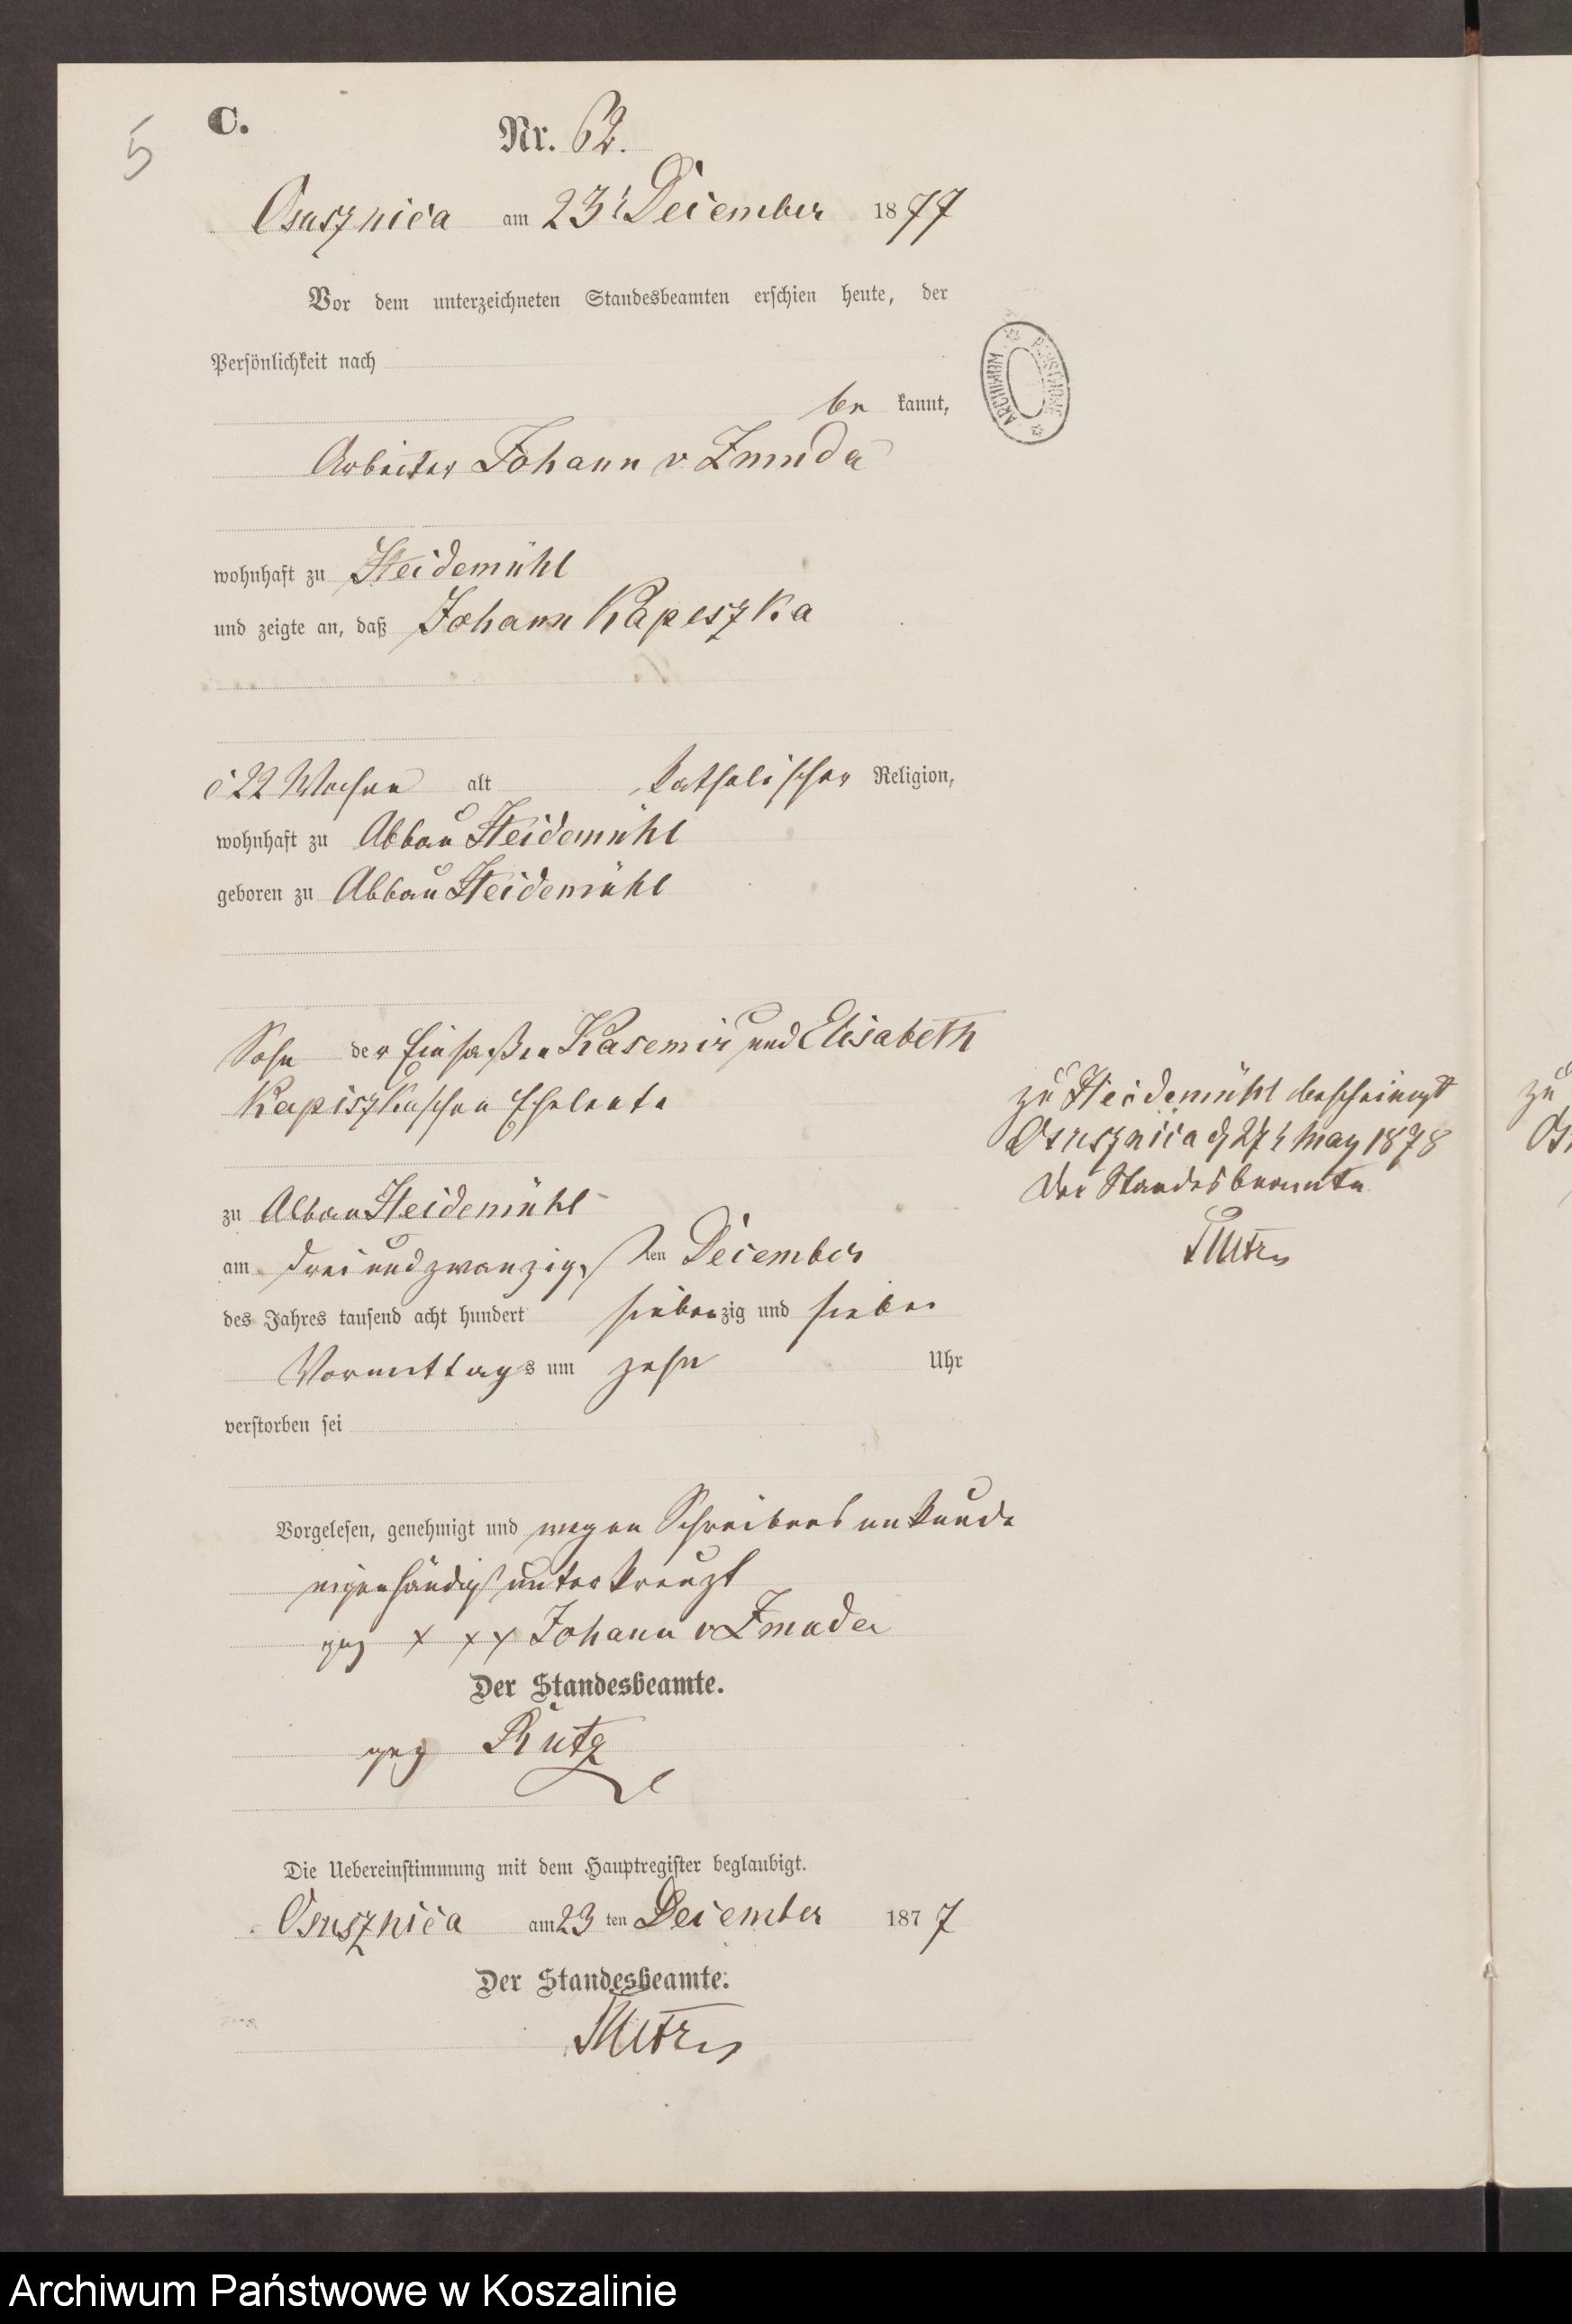 5
C.
Nr. 62.
Osusznica am 23t December 1877
Vor dem unterzeichneten Standesbeamten erschien heute, der
Persönlichkeit nach
be kannt,
Arbeiter Johann v. Zmuda
wohnhaft zu Heidemühl
und zeigte an, daß Johann Kapeszka
22 Wochen alt katholischer Religion,
wohnhaft zu Abbau Heidemühl
geboren zu Abbau Heidemühl
Sohn der Einsaßen Kasemir und Elisabeth
Kapiszkaschen Eheleute
zu Abbau Heidemühl
am dreiundzwanzigsten December
des Jahres tausend acht hundert siebenzig und sieben
Vormittags um zehn Uhr
verstorben sei
Vorgelesen, genehmigt und wegen Schreibens unkunde
eigenhändig unterkreuzt
gez x x x Johann v Zmuda
Der Standesbeamte.
gez Rutz
Die Uebereinstimmung mit dem Hauptregister beglaubigt.
Osusznica am 23 ten December 1877
Der Standesbeamte.
zu Heidemühl bescheinigt
Osusznica d 27t May 1878
Der Standesbeamte
ARCHIWUM PAŃSTWOWE
zu
Archiwum Państwowe w Koszalinie